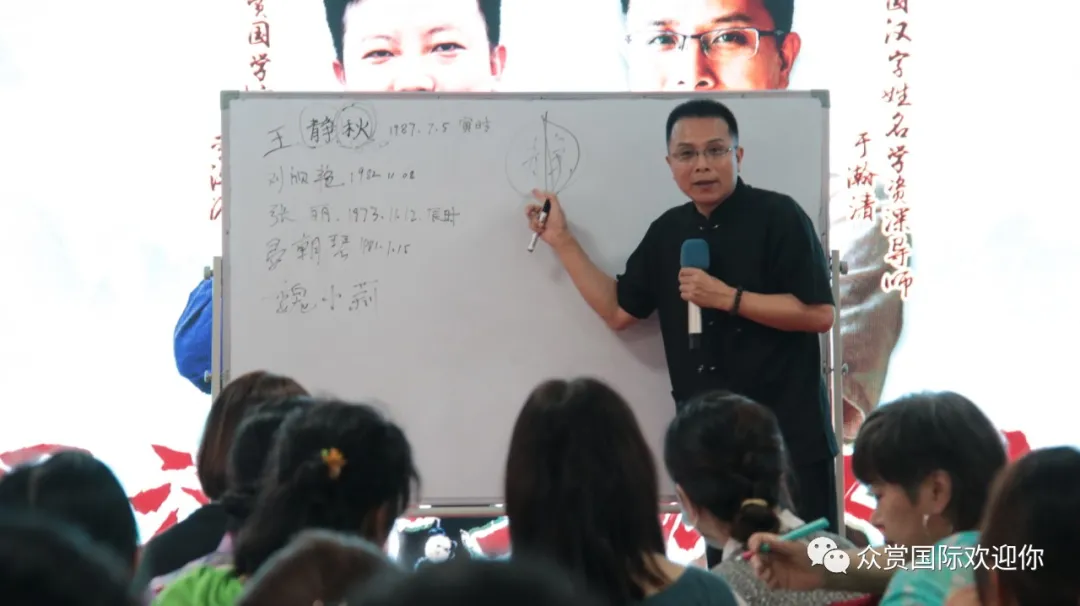 赏国学
国汉字姓名学资深导师
于瀚清
王静秋 1987.7.5 寅时
张丽.1973.11.12.辰时
朝琴 1981.1.15
魏小莉
众赏国际欢迎你